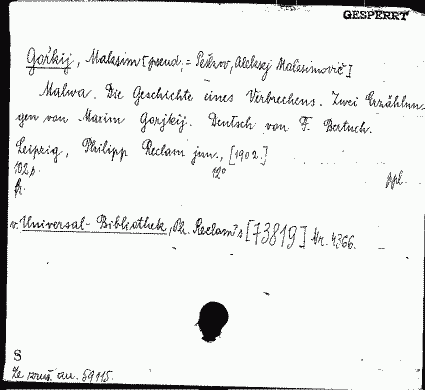 GESPERRT
Gorkij, Maksim [pseud. = Peškov, Aleksej Maksimovič]
Malwa. Die Geschichte eines Verbrechens. Zwei Erzählun-
gen von Maxim Gorjkij. Deutsch von F. Bertuch.
Leipzig, Philipp Reclam jun., [1902.]
102 p. 12°
ppl.
v. Universal-Bibliothek, Ph. Reclam's [73819] Nr. 4366.
S
Ze zruš. au. 59115.